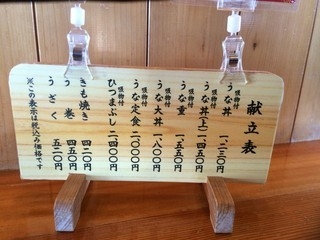 献立表
吸物付 うな丼 一、二三〇円
吸物付 うな丼(上) 一、四五〇円
吸物付 うな重 一、五五〇円
吸物付 うな大丼 一、八〇〇円
吸物付 うな定食 二、〇〇〇円
ひつまぶし 二、四〇〇円
きも焼き 四二〇円
う巻 四五〇円
うざく 五二〇円
※この表示は税込み価格です